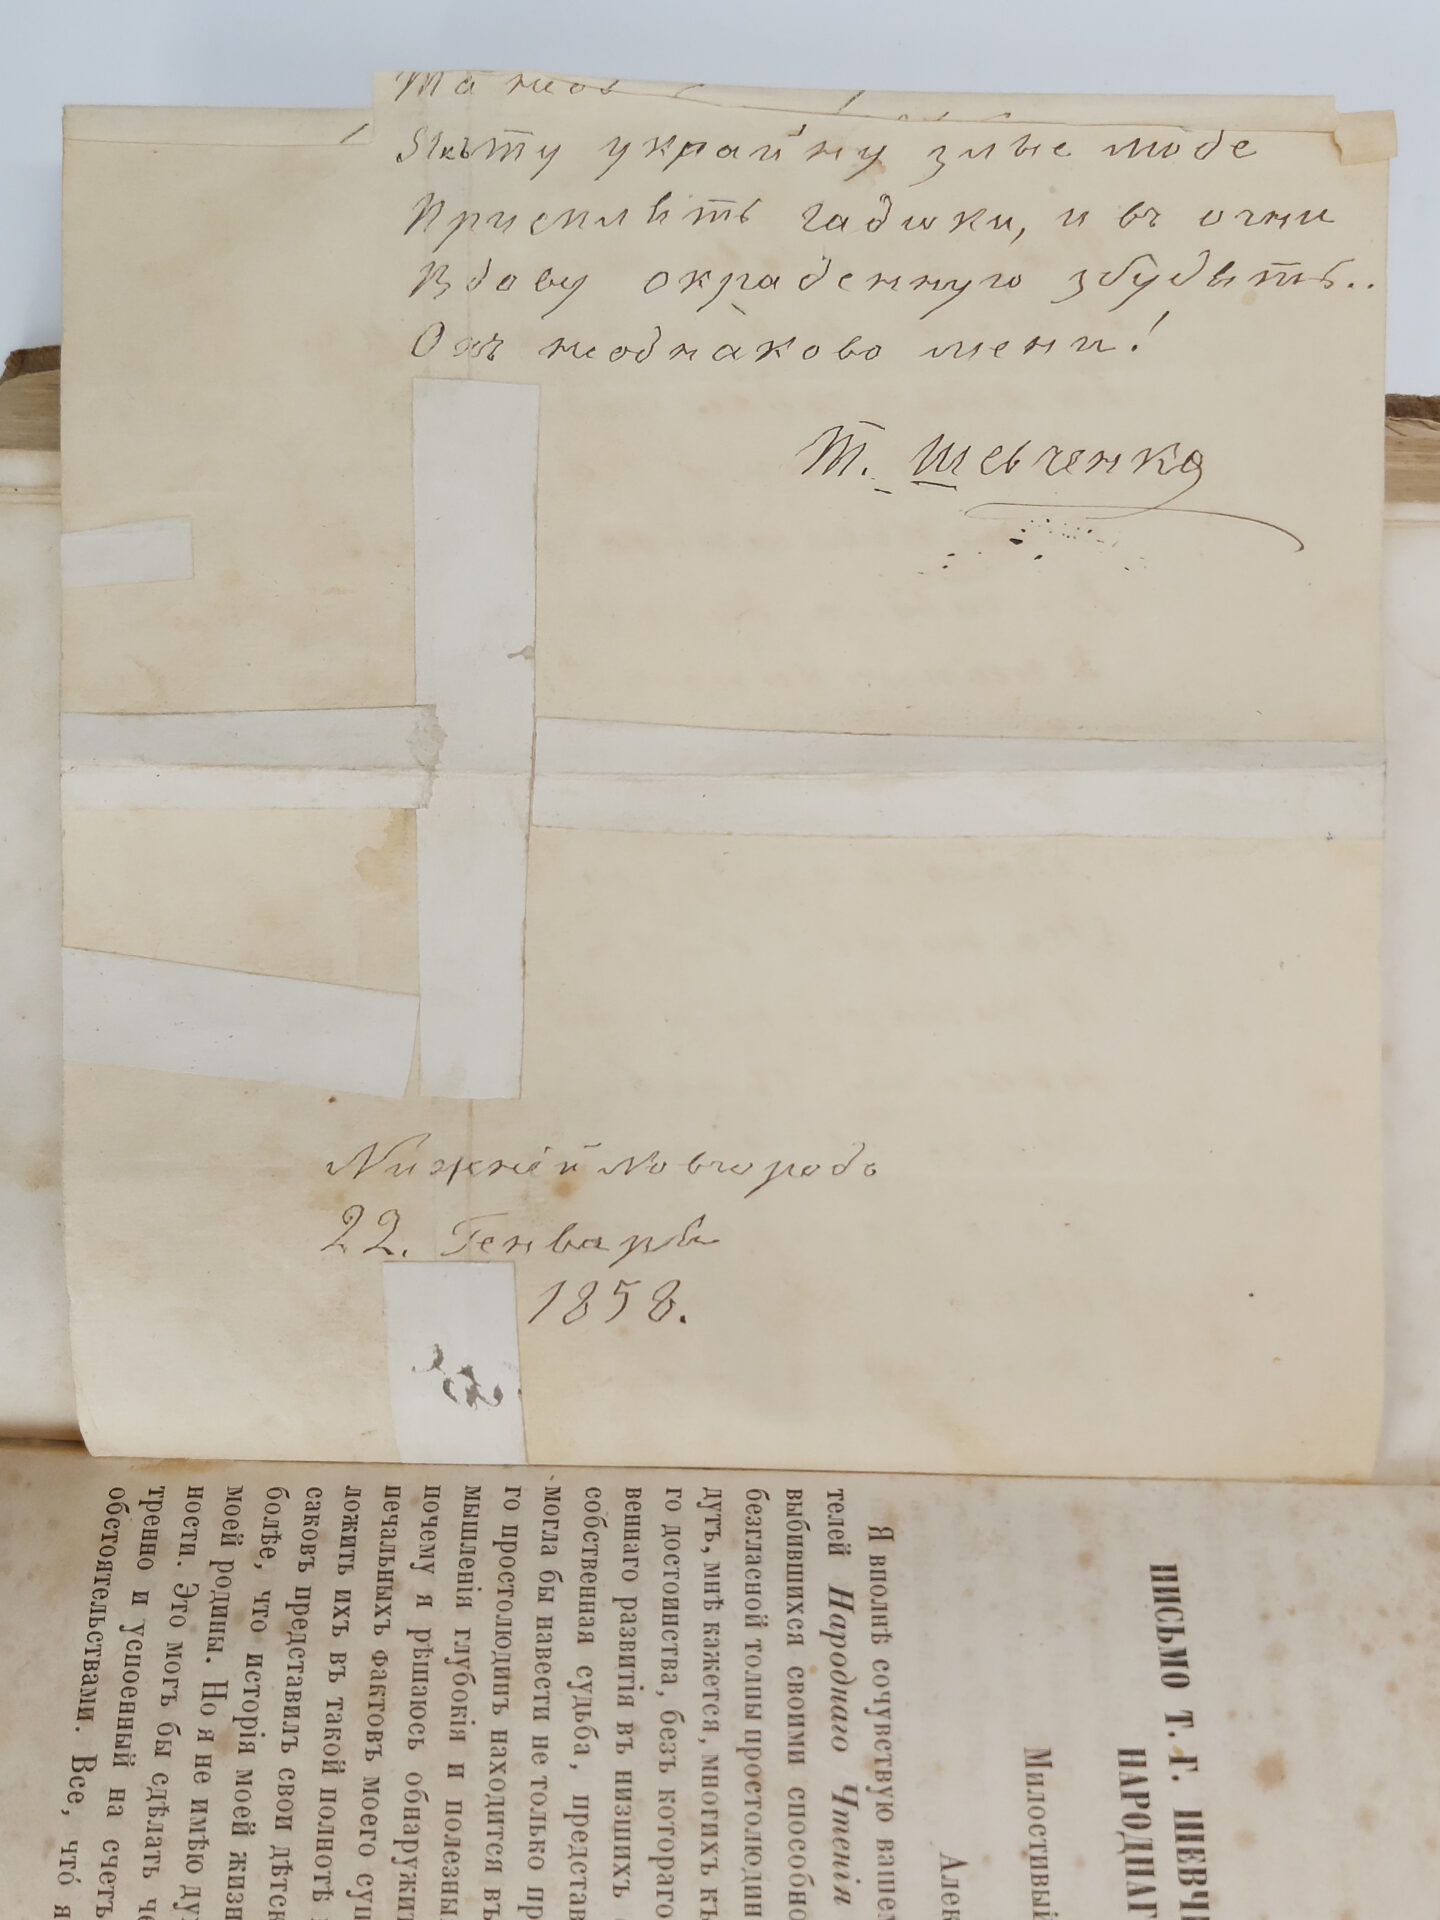 Та не
Якъ ту украину злые люде
Присплятъ гадюки, и въ огни
Вдову окраденную збудятъ..
Охъ неоднаково мени!
Т. Шевченко
Нижній Новгородъ
22. Генваря
1858.
ПИСЬМО Т. Г. ШЕВЧЕ
НАРОДНАГ
Милостивый
Алек
Я вполнѣ сочувствую вашем
телей Народнаго Чтенія
выбившихся своими способно
безгласной толпы простолюдин
дутъ, мнѣ кажется, многихъ къ
го достоинства, безъ котораго
веннаго развитія въ низшихъ
собственная судьба, представ
могла бы навести не только пр
го простолюдинъ находится въ
мышленія глубокія и полезны
почему я рѣшаюсь обнаружит
печальныхъ фактовъ моего сущ
ложить ихъ въ такой полнотѣ
саковъ представилъ свои дѣтск
болѣе, что исторія моей жизн
моей родины. Но я не имѣю ду
ности. Это могъ бы сдѣлать че
тренно и успоенный на счетъ
обстоятельствами. Все, что́ я